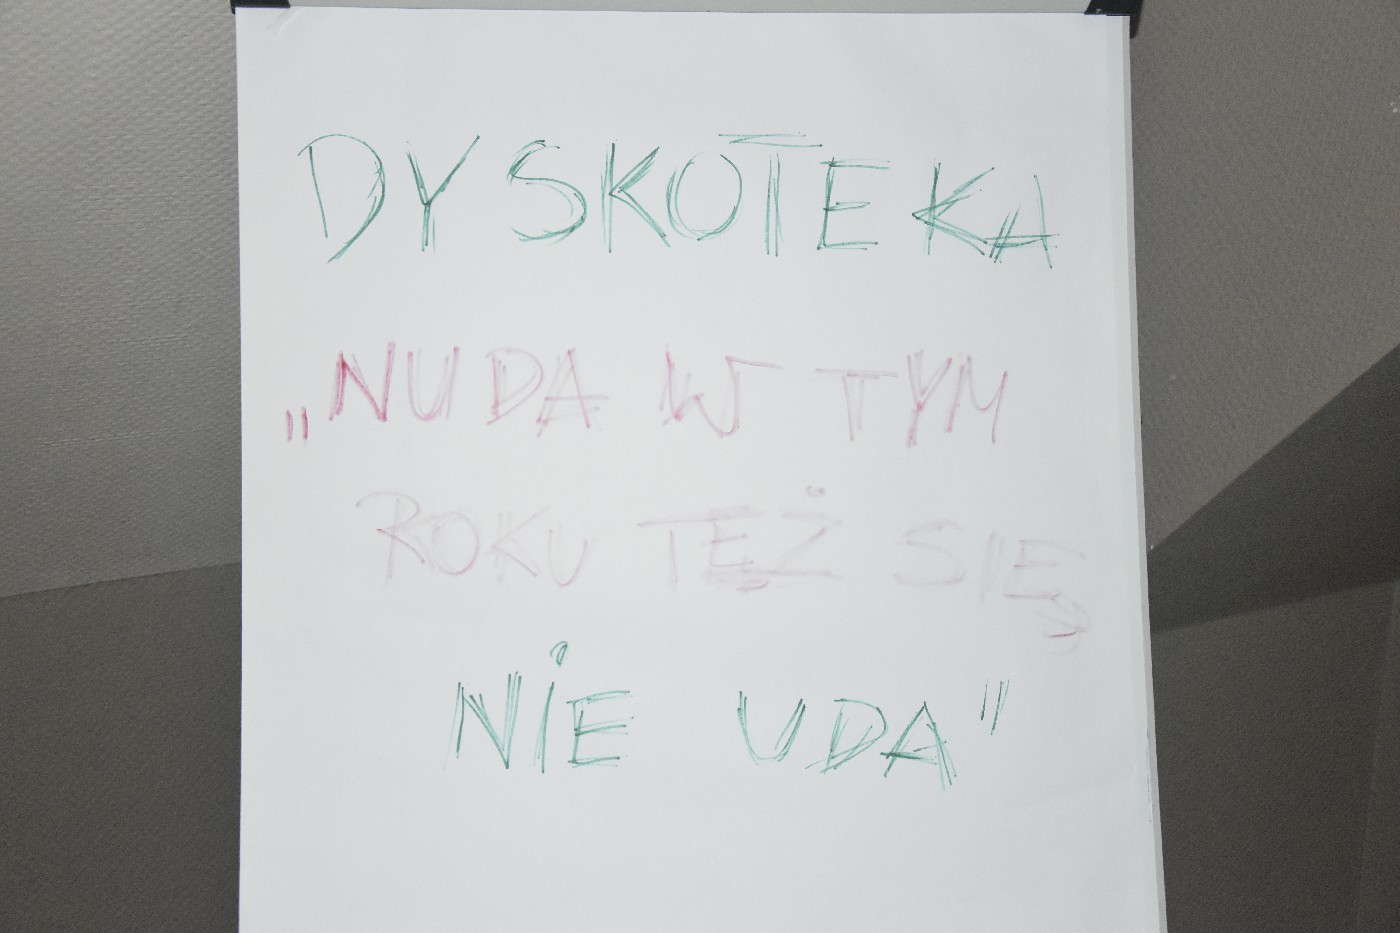 DYSKOTEKA
„NUDA W TYM
ROKU TĘŻ SIĘ
NIE UDA"